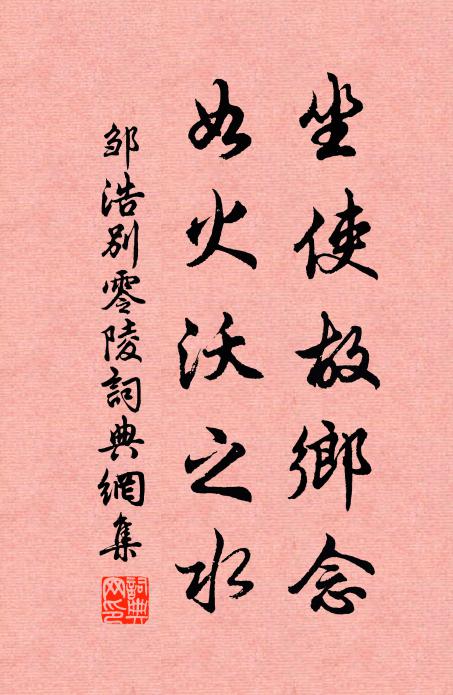 坐使故鄉念
如火沃之水
鄒浩別零陵詞典網集
詞典網印